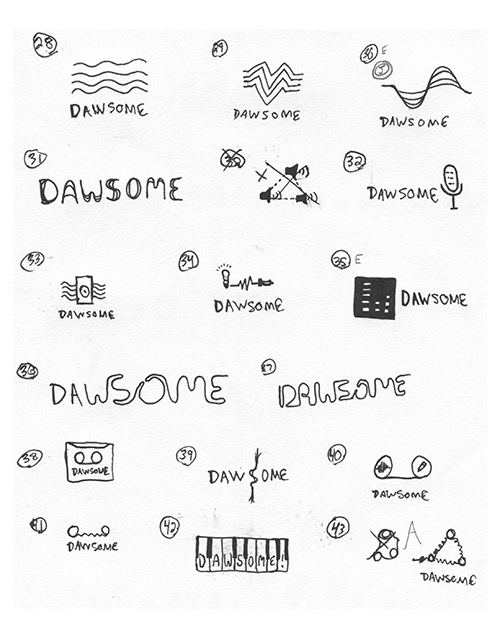 28 29 30 E
DAWSOME DAWSOME DAWSOME
31 32
DAWSOME DAWSOME
33 34 35 E
DAWSOME DAWSOME DAWSOME
36 37
DAWSOME DAWSOME
38 39 40
DAWSOME DAWSOME DAWSOME
41 42 43 A
DAWSOME DAWSOME! DAWSOME